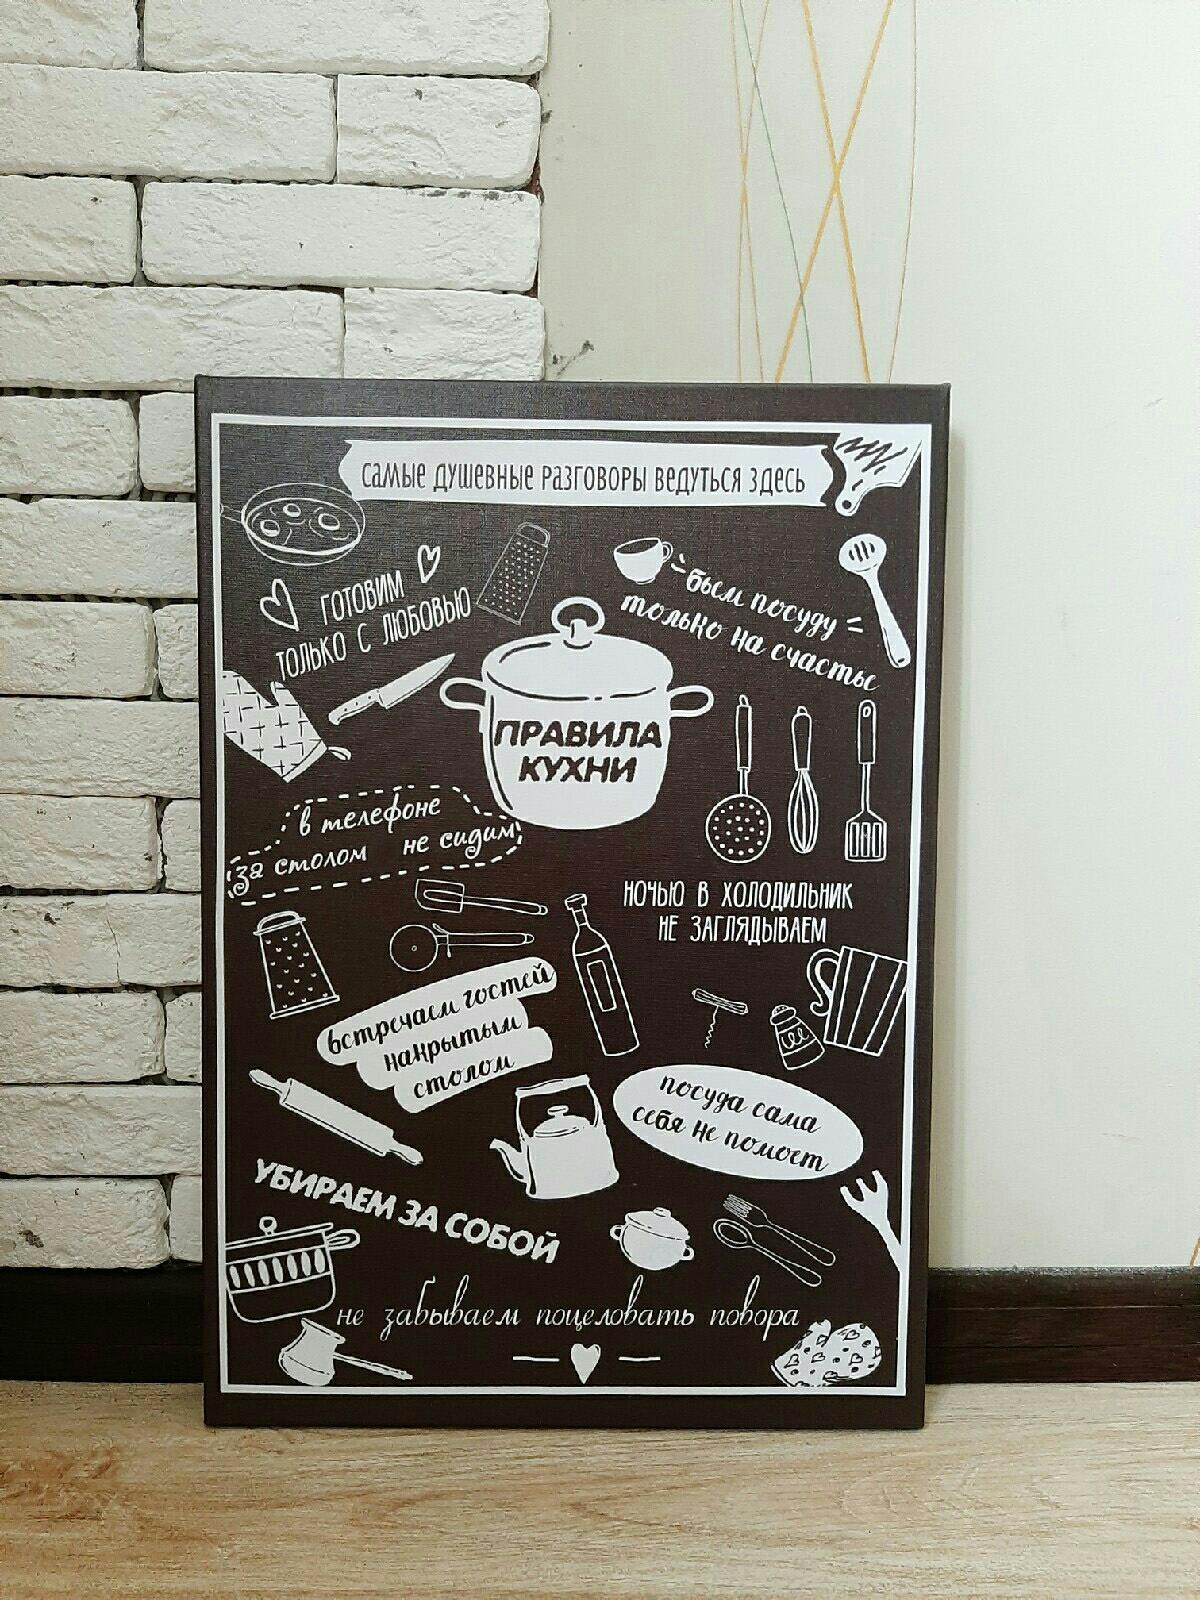 самые душевные разговоры ведуться здесь
ГОТОВИМ
ТОЛЬКО С ЛЮБОВЬЮ
бьем посуду
только на счастье
ПРАВИЛА
КУХНИ
в телефоне
за столом не сидим
НОЧЬЮ В ХОЛОДИЛЬНИК
НЕ ЗАГЛЯДЫВАЕМ
встречаем гостей
накрытым
столом
посуда сама
себя не помоет
УБИРАЕМ ЗА СОБОЙ
не забываем поцеловать повора